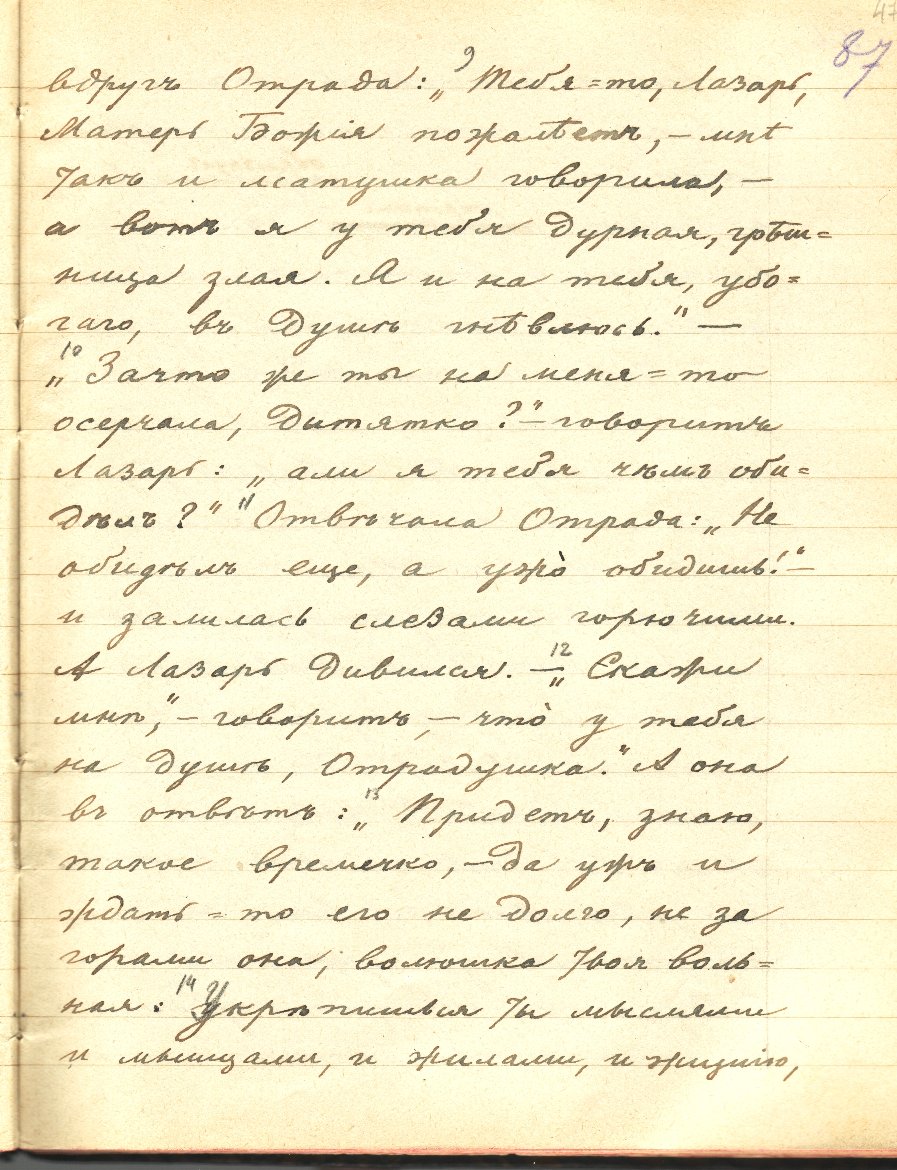 47
87
вдругъ Отрада: 9 „Тебя=то, Лазарь,
Матерь Божія пожалѣетъ, – мнѣ
такъ и матушка говорила, –
а вотъ я у тебя дурная, грѣш=
ница злая. Я и на тебя, убо=
гаго, въ душѣ гнѣвлюсь." –
10 „Зачто же ты на меня=то
осерчала, дитятко?" – говоритъ
Лазарь: „али я тебя чѣмъ оби=
дѣлъ?" 11 Отвѣчала Отрада: „Не
обидѣлъ еще, а ужо̀ обидишь!" –
и залилась слезами горючими.
А Лазарь дивился. – 12 „Скажи
мнѣ," – говоритъ, – что̀ у тебя
на душѣ, Отрадушка." А она
въ отвѣтъ: 13 „Придетъ, знаю,
такое времечко, – да ужъ и
ждать=то его не долго, не за
горами она, волюшка твоя воль=
ная: 14 Укрѣпишься ты мыслями
и мышцами, и жилами, и жицию,